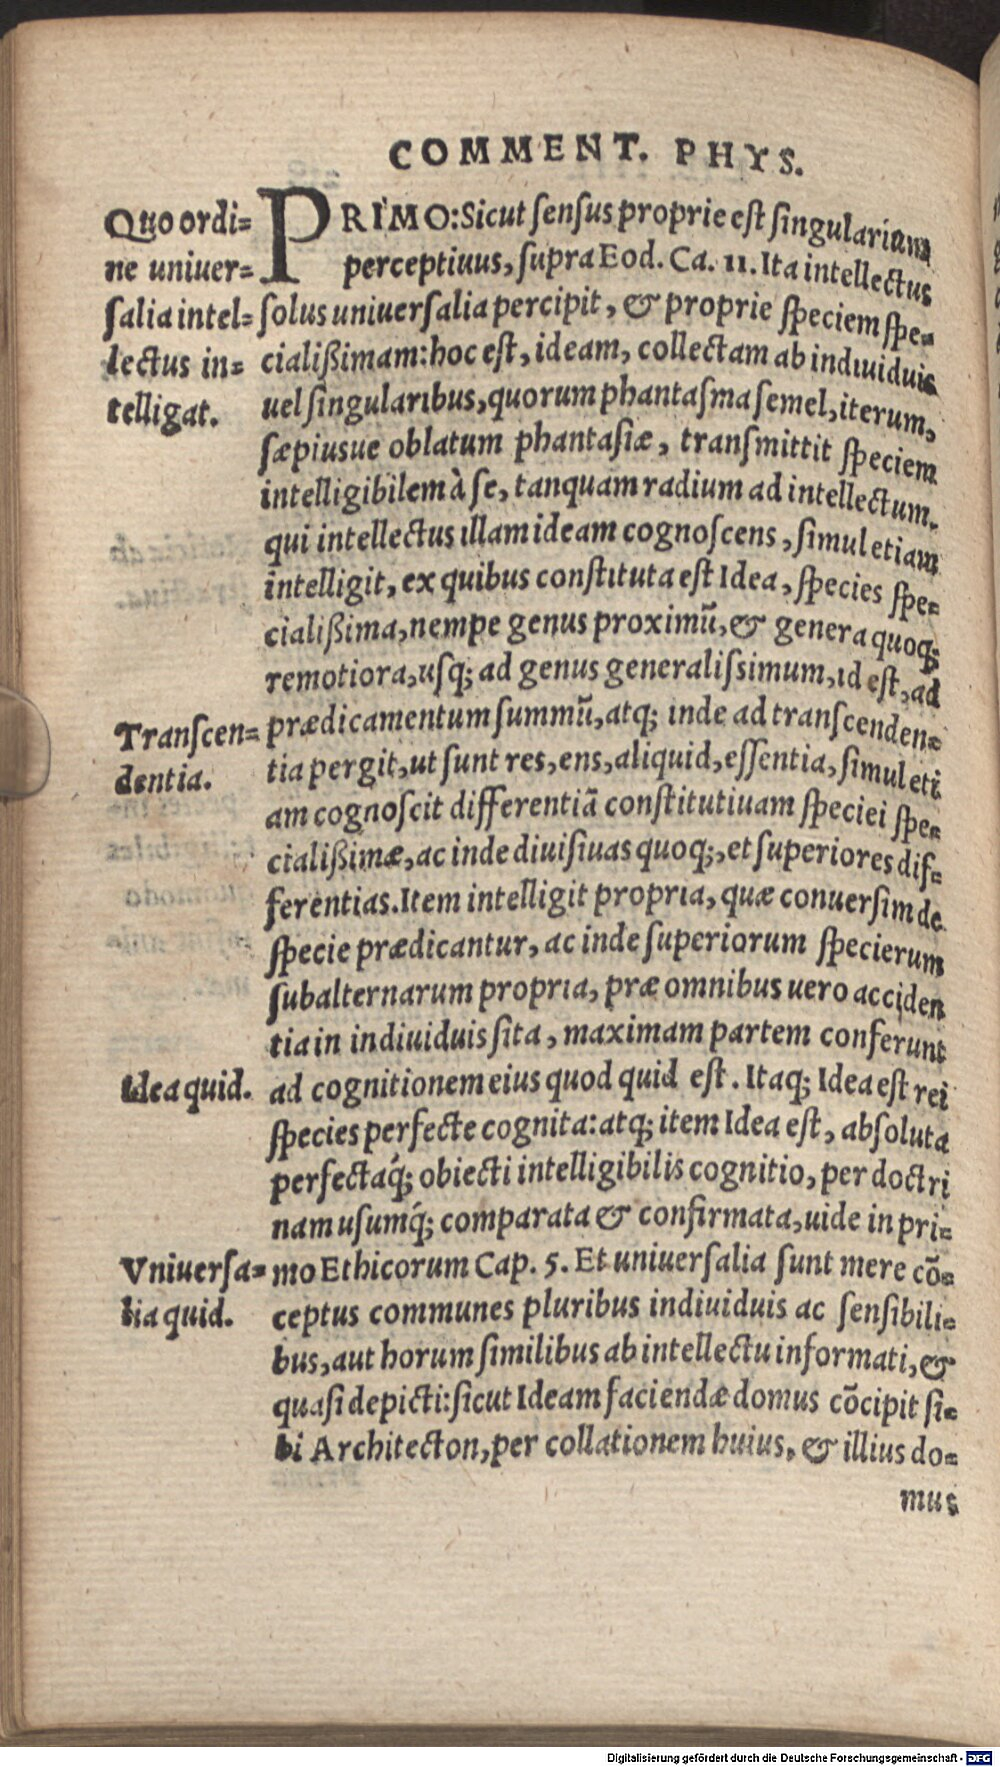 COMMENT. PHYS.
Quo ordi=
ne uniuer=
salia intel=
lectus in=
telligat.
PRIMO: Sicut sensus proprie est singularium
perceptiuus, supra Eod. Ca. 11. Ita intellectus
solus uniuersalia percipit, & proprie speciem spe=
cialißimam: hoc est, ideam, collectam ab indiuiduis
uel singularibus, quorum phantasma semel, iterum,
sæpiusue oblatum phantasiæ, transmittit speciem
intelligibilem à se, tanquam radium ad intellectum.
qui intellectus illam ideam cognoscens, simul etiam
intelligit, ex quibus constituta est Idea, species spe=
cialißima, nempe genus proximũ, & genera quoq;
remotiora, usq; ad genus generalissimum, id est, ad
Transcen=
dentia.
prædicamentum summũ, atq; inde ad transcenden=
tia pergit, ut sunt res, ens, aliquid, essentia, simul eti
am cognoscit differentiã constitutiuam speciei spe=
cialißimæ, ac inde diuisiuas quoq;, et superiores dif=
ferentias. Item intelligit propria, quæ conuersim de
specie prædicantur, ac inde superiorum specierum
subalternarum propria, præ omnibus uero acciden
tia in indiuiduis sita, maximam partem conferunt
Idea quid.
ad cognitionem eius quod quid est. Itaq; Idea est rei
species perfecte cognita: atq; item Idea est, absoluta
perfectaq́; obiecti intelligibilis cognitio, per doctri
nam usumq́; comparata & confirmata, uide in pri=
Vniuersa=
lia quid.
mo Ethicorum Cap. 5. Et uniuersalia sunt mere cõ=
ceptus communes pluribus indiuiduis ac sensibili=
bus, aut horum similibus ab intellectu informati, &
quasi depicti: sicut Ideam faciendæ domus cõcipit si=
bi Architecton, per collationem huius, & illius do=
mus
Digitalisierung gefördert durch die Deutsche Forschungsgemeinschaft - DFG